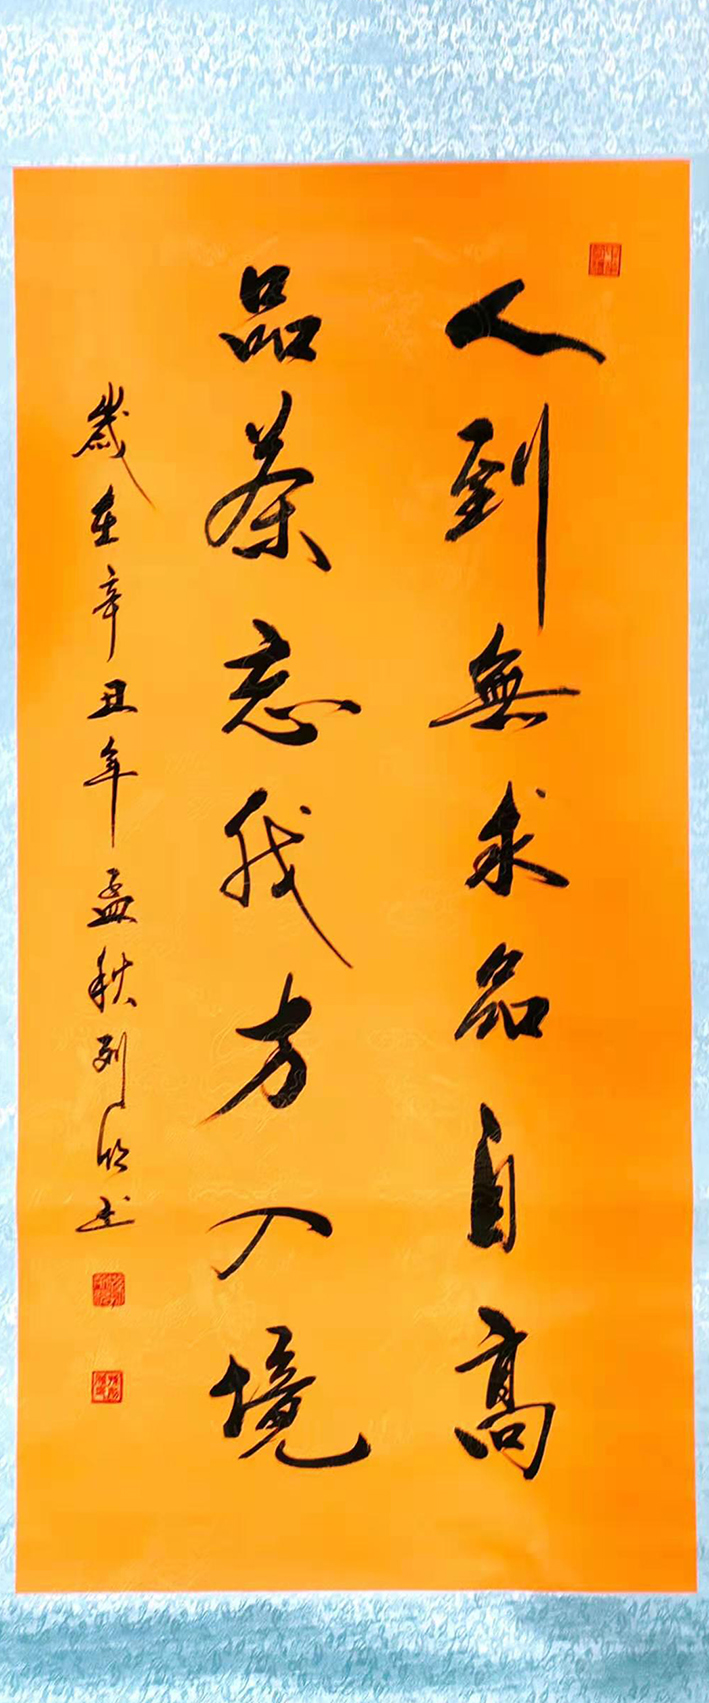 人到無求品自高
品茶忘我方入境
歲在辛丑年孟秋列欣书